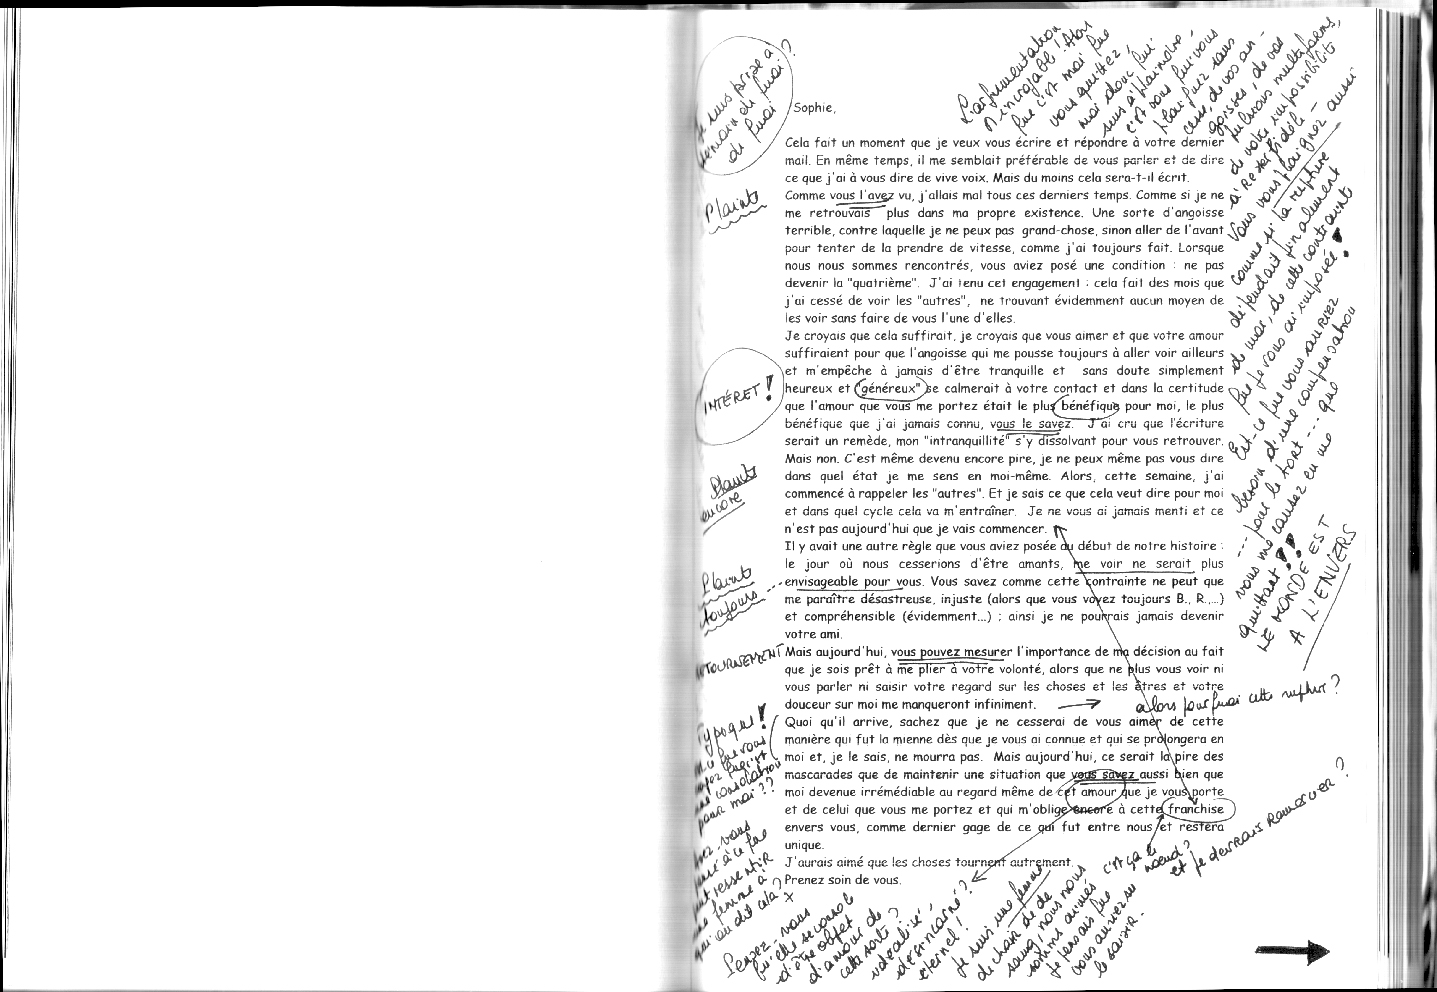 Sophie,
Cela fait un moment que je veux vous écrire et répondre à votre dernier
mail. En même temps, il me semblait préférable de vous parler et de dire
ce que j'ai à vous dire de vive voix. Mais du moins cela sera-t-il écrit.
Comme vous l'avez vu, j'allais mal tous ces derniers temps. Comme si je ne
me retrouvais plus dans ma propre existence. Une sorte d'angoisse
terrible, contre laquelle je ne peux pas grand-chose, sinon aller de l'avant
pour tenter de la prendre de vitesse, comme j'ai toujours fait. Lorsque
nous nous sommes rencontrés, vous aviez posé une condition : ne pas
devenir la "quatrième". J'ai tenu cet engagement : cela fait des mois que
j'ai cessé de voir les "autres", ne trouvant évidemment aucun moyen de
les voir sans faire de vous l'une d'elles.
Je croyais que cela suffirait, je croyais que vous aimer et que votre amour
suffiraient pour que l'angoisse qui me pousse toujours à aller voir ailleurs
et m'empêche à jamais d'être tranquille et sans doute simplement
heureux et "généreux" se calmerait à votre contact et dans la certitude
que l'amour que vous me portez était le plus bénéfique pour moi, le plus
bénéfique que j'ai jamais connu, vous le savez. J'ai cru que l'écriture
serait un remède, mon "intranquillité" s'y dissolvant pour vous retrouver.
Mais non. C'est même devenu encore pire, je ne peux même pas vous dire
dans quel état je me sens en moi-même. Alors, cette semaine, j'ai
commencé à rappeler les "autres". Et je sais ce que cela veut dire pour moi
et dans quel cycle cela va m'entraîner. Je ne vous ai jamais menti et ce
n'est pas aujourd'hui que je vais commencer.
Il y avait une autre règle que vous aviez posée au début de notre histoire :
le jour où nous cesserions d'être amants, me voir ne serait plus
envisageable pour vous. Vous savez comme cette contrainte ne peut que
me paraître désastreuse, injuste (alors que vous voyez toujours B., R.,…)
et compréhensible (évidemment…) ; ainsi je ne pourrais jamais devenir
votre ami.
Mais aujourd'hui, vous pouvez mesurer l'importance de ma décision au fait
que je sois prêt à me plier à votre volonté, alors que ne plus vous voir ni
vous parler ni saisir votre regard sur les choses et les êtres et votre
douceur sur moi me manqueront infiniment.
Quoi qu'il arrive, sachez que je ne cesserai de vous aimer de cette
manière qui fut la mienne dès que je vous ai connue et qui se prolongera en
moi et, je le sais, ne mourra pas. Mais aujourd'hui, ce serait la pire des
mascarades que de maintenir une situation que vous savez aussi bien que
moi devenue irrémédiable au regard même de cet amour que je vous porte
et de celui que vous me portez et qui m'oblige encore à cette franchise
envers vous, comme dernier gage de ce qui fut entre nous et restera
unique.
J'aurais aimé que les choses tournent autrement.
Prenez soin de vous.
Plainte
INTÉRET !
Plainte
encore
Plainte
toujours
L'argumentation
incroyable ! Alors
que c'est moi que
vous quittez,
vous vous plaignez aussi
comme si la rupture
dépendait finalement
de moi, de cette contrainte
que je vous ai imposée !
Est-ce que vous auriez
besoin d'une compensation
--- pour le tort --- que
vous me causez en me
quittant !!
LE MONDE EST
A L'ENVERS
alors pourquoi cette rupture ?
c'est ça le
noeud ?
et je devrais REMERCIER ?
Pensez-vous
qu'elle se console
d'être objet
d'amour de
cette sorte ?
idéalisé,
désincarné ?
éternel !
Je suis une femme
de chair et de
sang, nous nous
sommes aimés
Je pensais que
vous auriez su
le saisir.